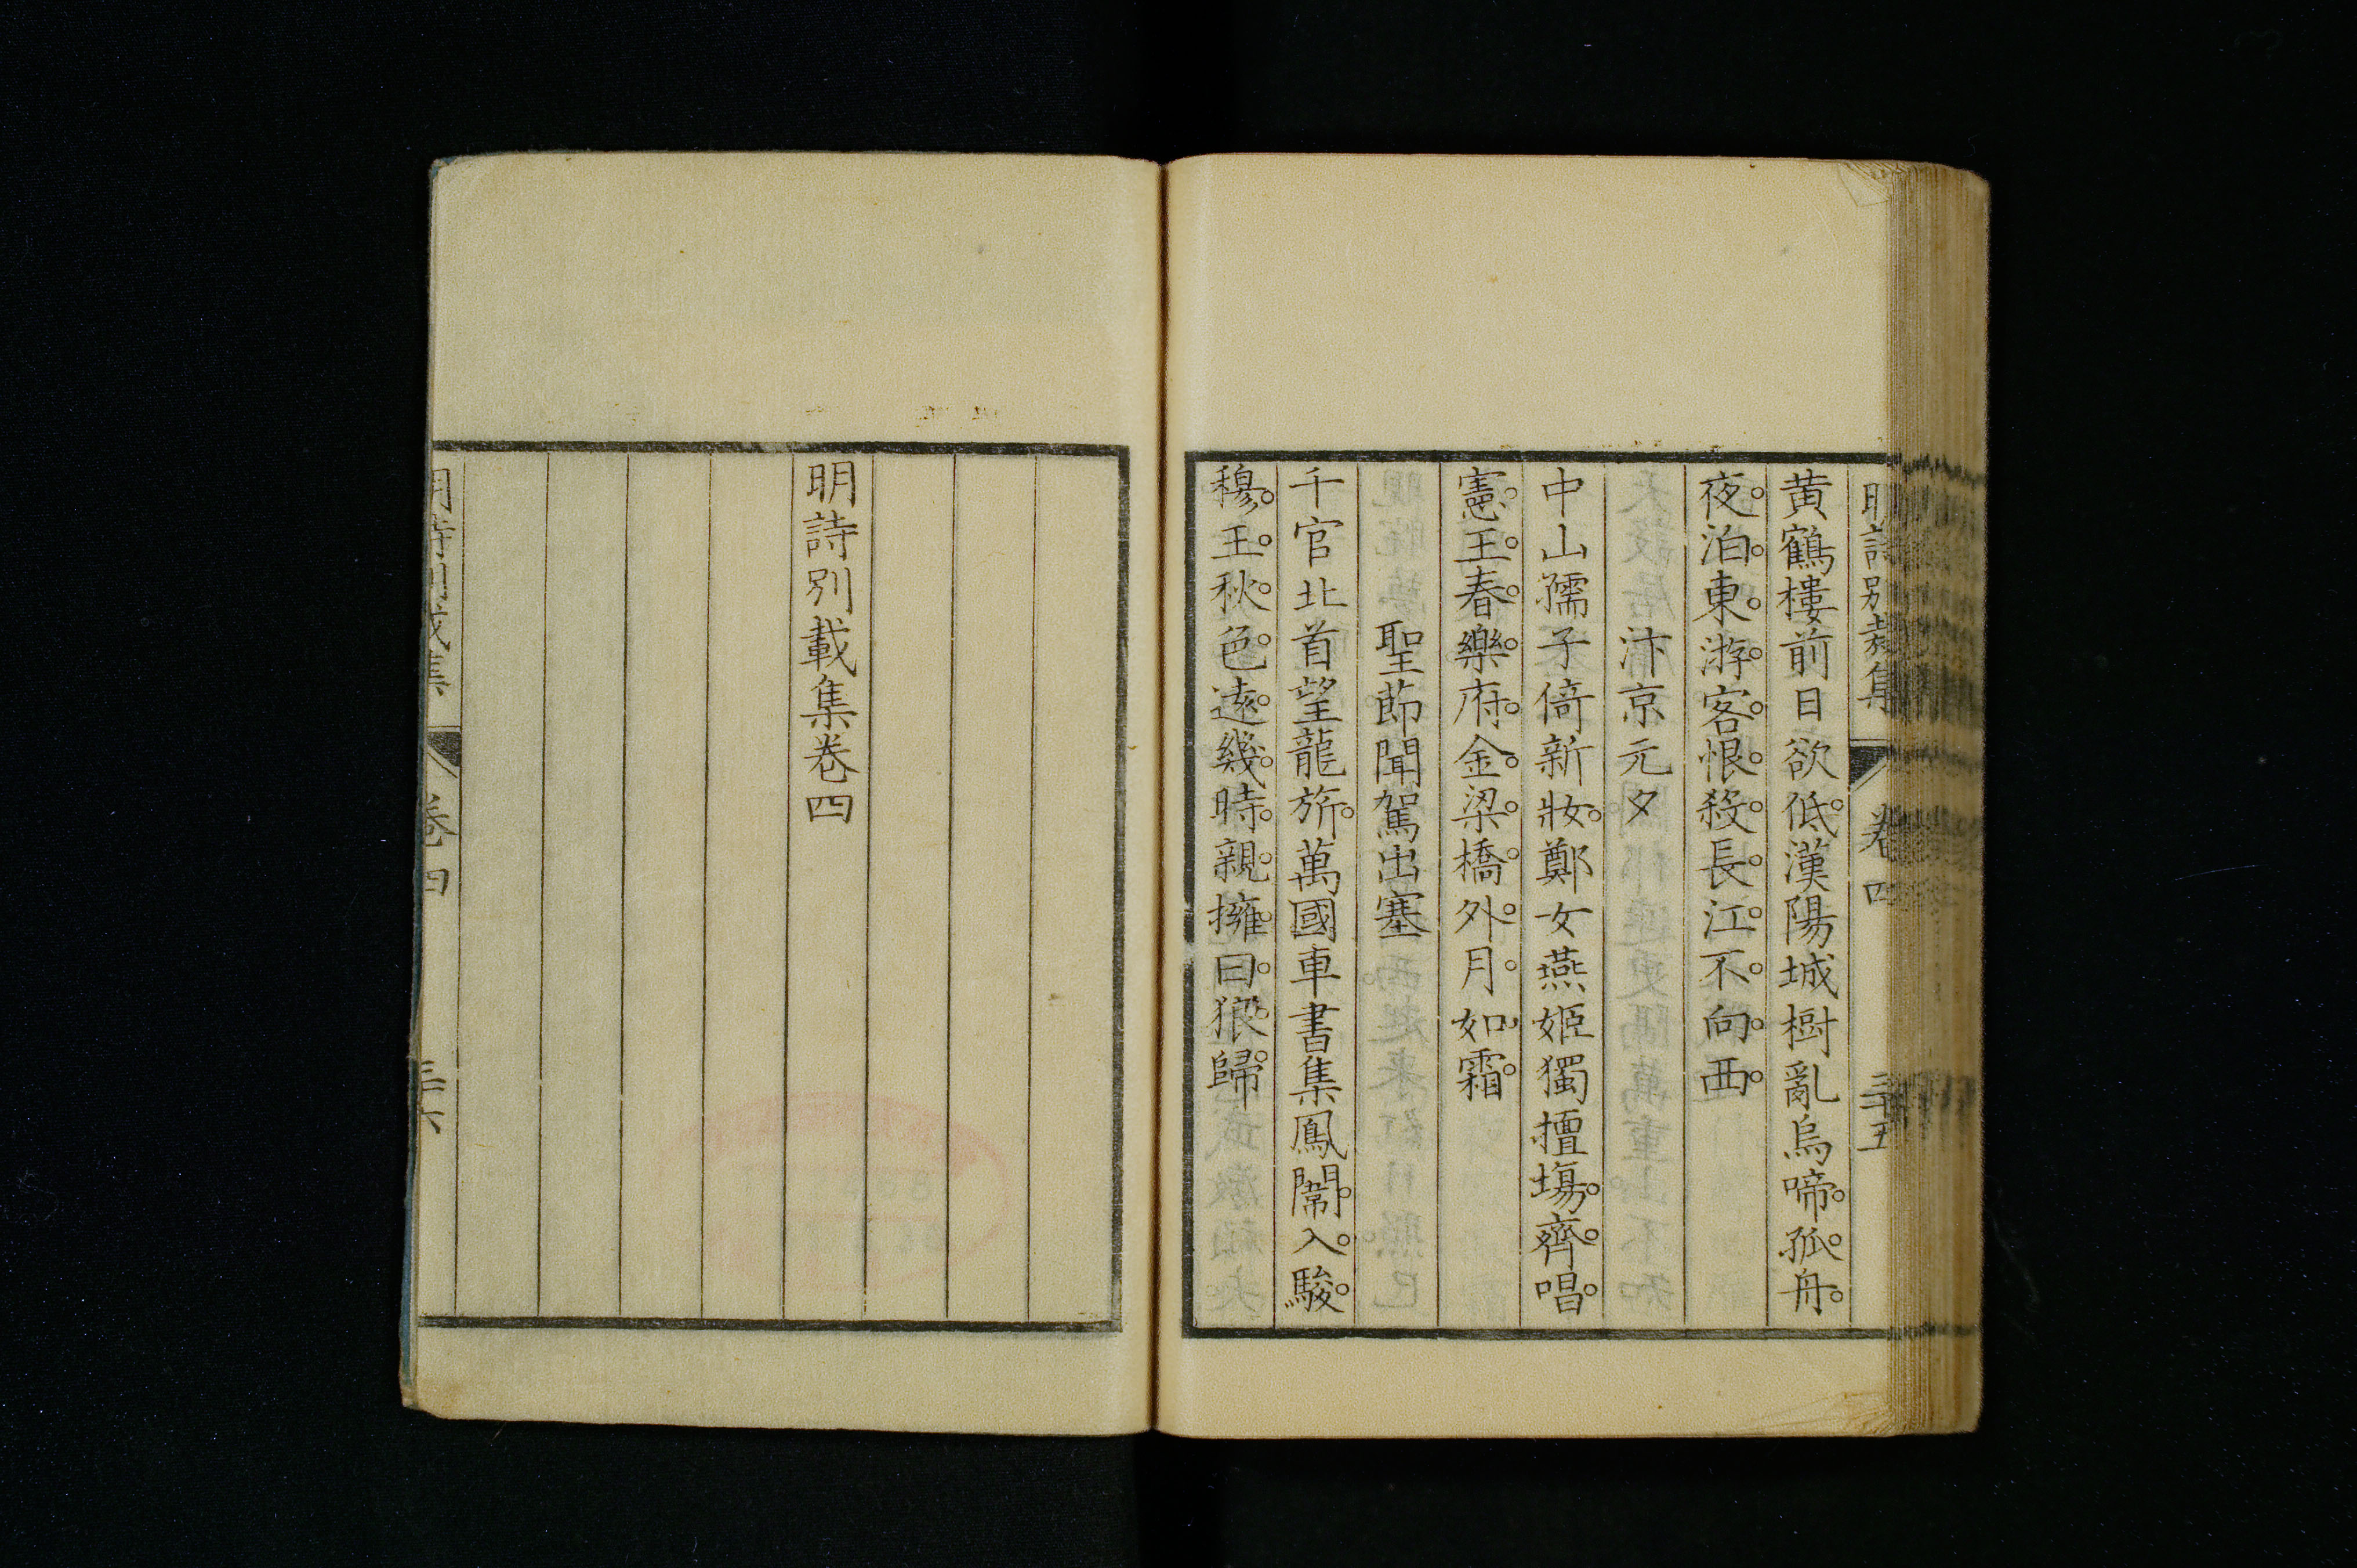 明詩別裁集 卷四 三十五
黃鶴樓前日欲低。漢陽城樹亂烏啼。孤。舟。
夜。泊。東。游。客。恨。殺。長。江。不。向。西。
汴京元夕
中山孺子倚新妝。鄭女燕姬獨擅場。齊。唱。
憲。王。春。樂。府。金。梁。橋。外。月。如。霜。
聖節聞駕出塞
千官北首望龍旂。萬國車書集鳳闈。入。駿。
穆。王。秋。色。遠。幾。時。親。擁。白。狼。歸。
明詩別裁集卷四
明詩別裁集 卷四 三十六